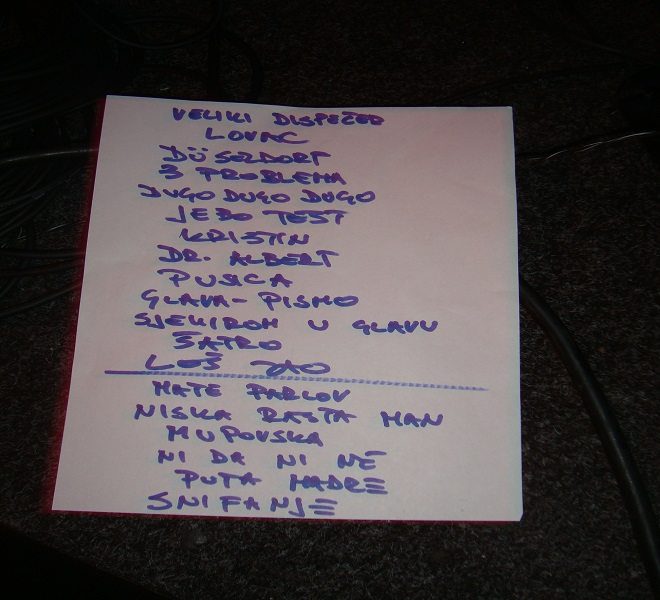 VELIKI DISPEČER
LOVAC
DÜSELDORF
3 PROBLEMA
DUGO DUGO DUGO
JEBO TEST
KRISTIN
DR. ALBERT
PUSICA
GLAVA-PISMO
SJEKIROM U GLAVU
ŠATRO
LOŠ ĐAO
MATE PARLOV
NISKA RASTA MAN
MUPOVSKA
NI DA NI NE
PUTA MADRE
SNIFANJE